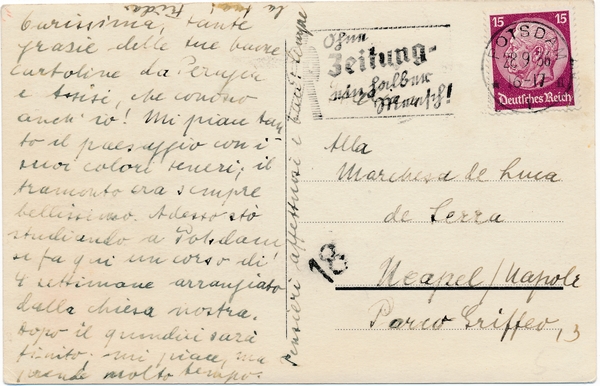 Carissima, tante
grazie delle tue buone
cartoline da Perugia
e Assisi, che conosco
anch'io! Mi piace tan
to il paesaggio con i
suoi colori teneri; il
tramonto era sempre
bellissimo. Adesso stò
studiando a Potsdam
si fa qui un corso di
4 settimane arrangiato
dalla chiesa nostra.
Dopo il quindici sarà
finito; mi piace, ma
prende molto tempo.
Pensieri affettuosi e baci! Sempre
la tua Frida
Ohne
Zeitung-
ein halber
Mensch!
POTSDAM
28.9.36
16-17
15 15
Deutsches Reich
Alla
Marchesa de Luca
de Serra
18
Neapel/Napole
Parco Griffeo, 13